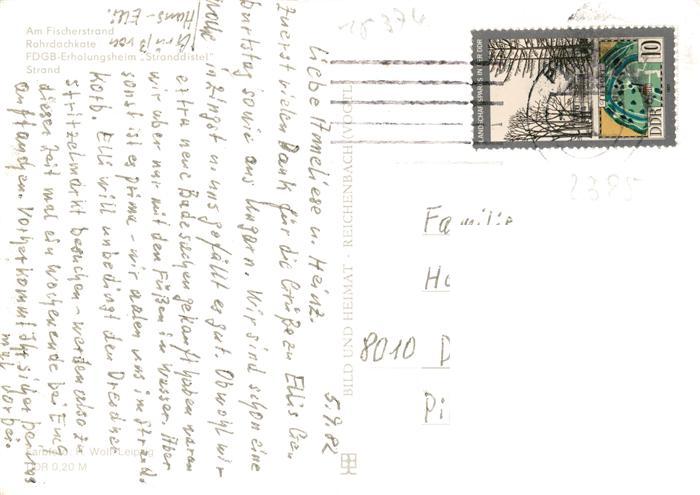 Am Fischerstrand
Rohrdachkate
FDGB-Erholungsheim „Stranddistel"
Strand
5.9.82
Liebe Anneliese u. Heinz.
Zuerst vielen Dank für die Grüße zu Ellis Ge-
burtstag sowie aus Ungarn. Wir sind schon eine
Woche in Zingst u. uns gefällt es gut. Obwohl wir
extra neue Badesachen gekauft haben waren
wir aber nur mit den Füßen im Wasser. Aber
sonst ist es prima – wir aalen uns im Strand-
korb. Elli will unbedingt den Dresdner
Stritzelmarkt besuchen – werden also zu
dieser Zeit mal ein Wochenende bei Euch
auftauchen. Vorher kommt ihr sicher bei uns
mal vorbei.
Grüße von
Hans-Elli.
Farbfoto: H. Wolf, Leipzig
DDR 0,20 M
BILD UND HEIMAT · REICHENBACH (VOGTL)
LANDSCHAFTSPARKS IN DER DDR
10
DDR
2385
Familie
8010 D